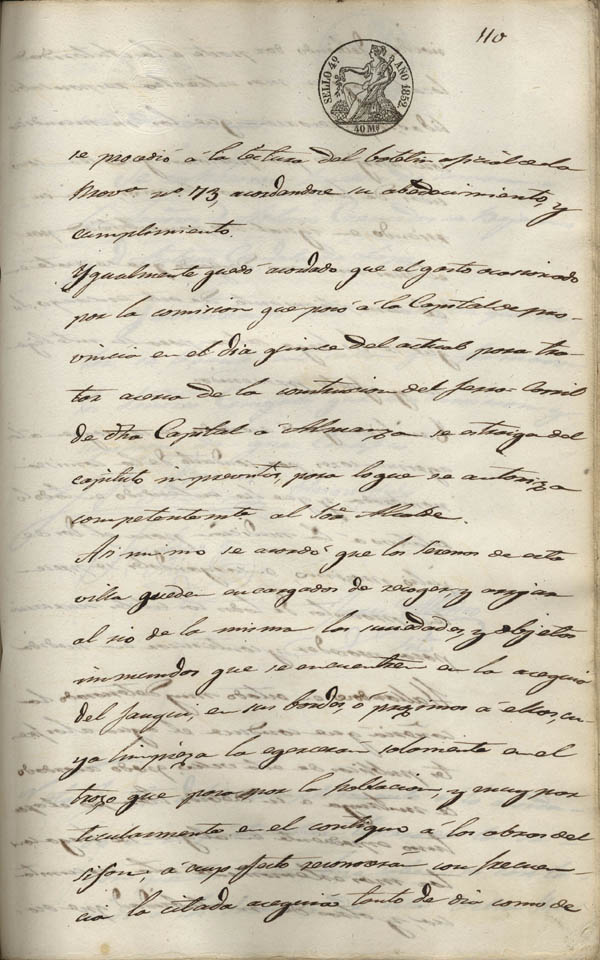 110
SELLO 4º AÑO 1852.
40 Mª
se procedió á la lectura del boletin oficial de la
Provª nº 173, acordandose su obedecimiento, y
cumplimiento.
Ygualmente quedó acordado que el gasto ocasionado
por la comision que pasó á la Capital de pro-
vincia en el dia quince del actual para tra-
tar acerca de la contrucion del ferro-Carril
de dha Capital a Almansa se estraiga del
capitulo imprevistos, para lo que se autoriza
competentemte al Sor Alcalde.
Asi mismo se acordó que los serenos de esta
villa queden encargados de recoger, y arrojar
al rio de la misma las suciedades, y objetos
inmundos que se encuentren en la acequia
del fauqui, en sus bordes, ó proximos á ellos, cu-
ya limpieza la egerceran solamente en el
trozo que pasa por la poblacion, y muy par
ticularmente en el contiguo á las obras del
sifon, á cuyo efecto reconocerán con frecuen-
cia la citada acequia tanto de dia como de